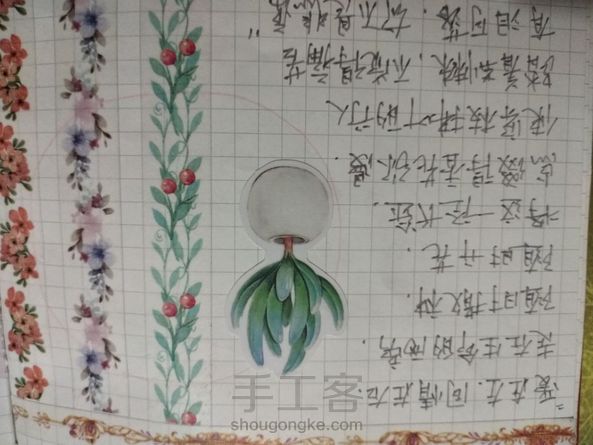 "爱在左.同情在右
走在生命的两旁.
随时撒种.
随时开花.
将这一径长途.
点缀得香花弥漫.
使穿枝拂叶的行人
踏着荆棘.不觉得痛苦
有泪可落.却不是悲凉"
手工客
shougongke.com